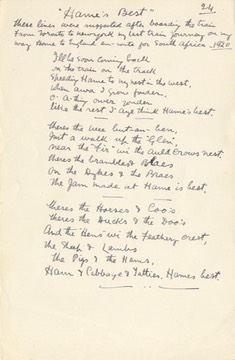 24.
"Hame's Best"
these lines were suggested after boarding the train
From Toronto to Newyork my last train journey on my
way Home to England en-route for South Africa. 1920
I'll be soon coming back
in the train on the track
Speeding Hame to my nest in the west,
when awa I grow fonder,
O a-thing over yonder
like the rest I aye think Hame's best.
theres the wee but-an-ben,
Just a walk up the Glen,
near the "Fir" wi the auld Crows nest
theres the brambles & Blaes
On the Dykes & the Braes
The Jam made at Hame is best,
theres the Horses & Coo's
theres the Ducks & the Doo's
And the Hens wi the Feathery crest,
the Sheep & Lambs
The Pigs & the Hams,
Ham & Cabbage & Tatties, Hames best